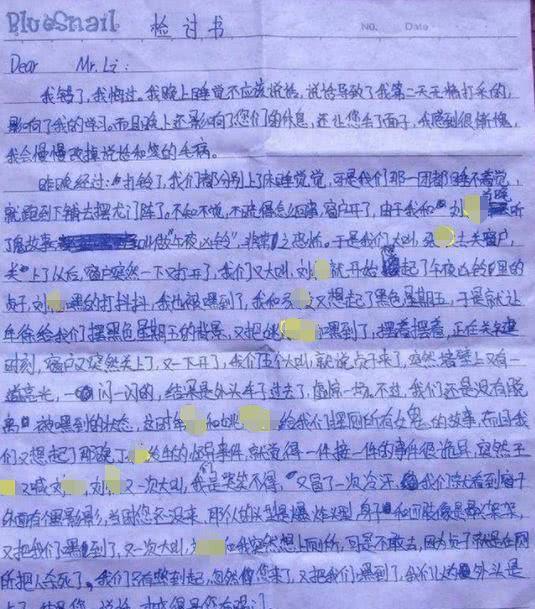 BlueSnail 检讨书 NO. Date
Dear Mr. Li:
我错了,我悔过。我晚上睡觉不应该说话,说话导致了我第二天无精打采的,
影响了我的学习。而且晚上还影响了您们的休息,还让您丢了面子,我感到很惭愧,
我会慢慢改掉说话和笑的毛病。
昨晚经过:打铃了,我们都分别上了床睡觉觉,可是我们那一团都睡不着觉,
就跑到下铺去摆龙门阵了。不知不觉,不晓得怎么回事,窗户开了,由于我和刘 听
了鬼故事 叫做"午夜凶铃",非常之恐怖。于是我们大叫, 去关窗户,
关上了以后,窗户突然一下又打开了,我们又大叫,刘 就开始 起了午夜凶铃里的
贞子,刘 嘿的打抖抖,我也被嘿到了,我和 又想起了黑色星期五,于是就让
给我们摆黑色星期五的背景,又把姚 嘿到了,摆着摆着,正在关键
时刻,窗户又突然关上了,又一下开了,我们五个大叫,就说贞子来了,突然墙壁上又有一
道亮光,一闪一闪的,结果是外头车子过去了,虚惊一场。不过,我们还是没有脱
离被嘿到的状态,这时 和姚 给我们摆厕所有女鬼的故事,而且我
们又想起了那晚丁 发生的惊号事件,就觉得一件接一件的事件很诡异,突然王
又喊 刘 又一次大叫,我是哭笑不得,又冒了一次冷汗。我们 看到窗子
外面有个黑影影,当时您还没来,那个人的头型是爆炸头, 身 和四肢像是
又把我们嘿到了,又一次大叫, 和我突然想上厕所,可是不敢去,因为贞子就是在厕
所把人杀死了。我们只有憋到起,忽然你您来了,又把我们嘿到了,我们以为外头是